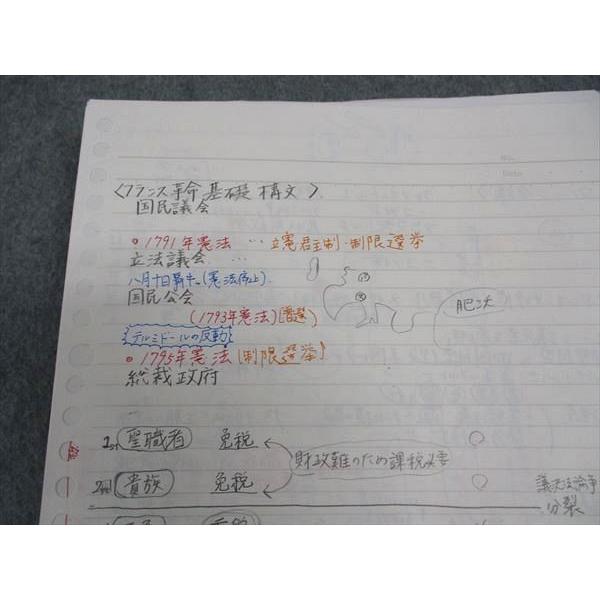 〈フランス革命 基礎 構文〉
国民議会
• 1791年憲法 … 立憲君主制・制限選挙
立法議会 …
八月十日事件 (憲法停止)
国民公会
(1793年憲法) (普選)
テルミドールの反動
• 1795年憲法 (制限選挙)
総裁政府
肥大
1st 聖職者 免税
財政難のため課税必要
2nd 貴族 免税
議決法論争
分裂